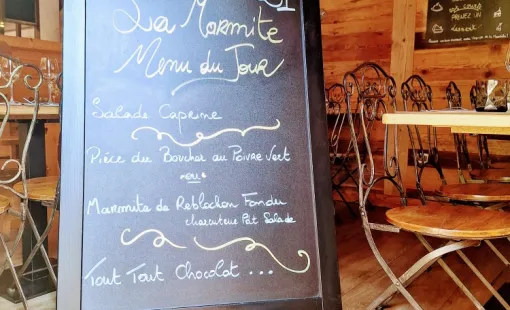 La Marmite
Menu du Jour
Salade Caprine
Pièce du Boucher au Poivre Vert
ou
Marmite de Reblochon Fondu
charcuterie Pdt Salade
Tout Tout Chocolat ...
PRENEZ UN
dessert